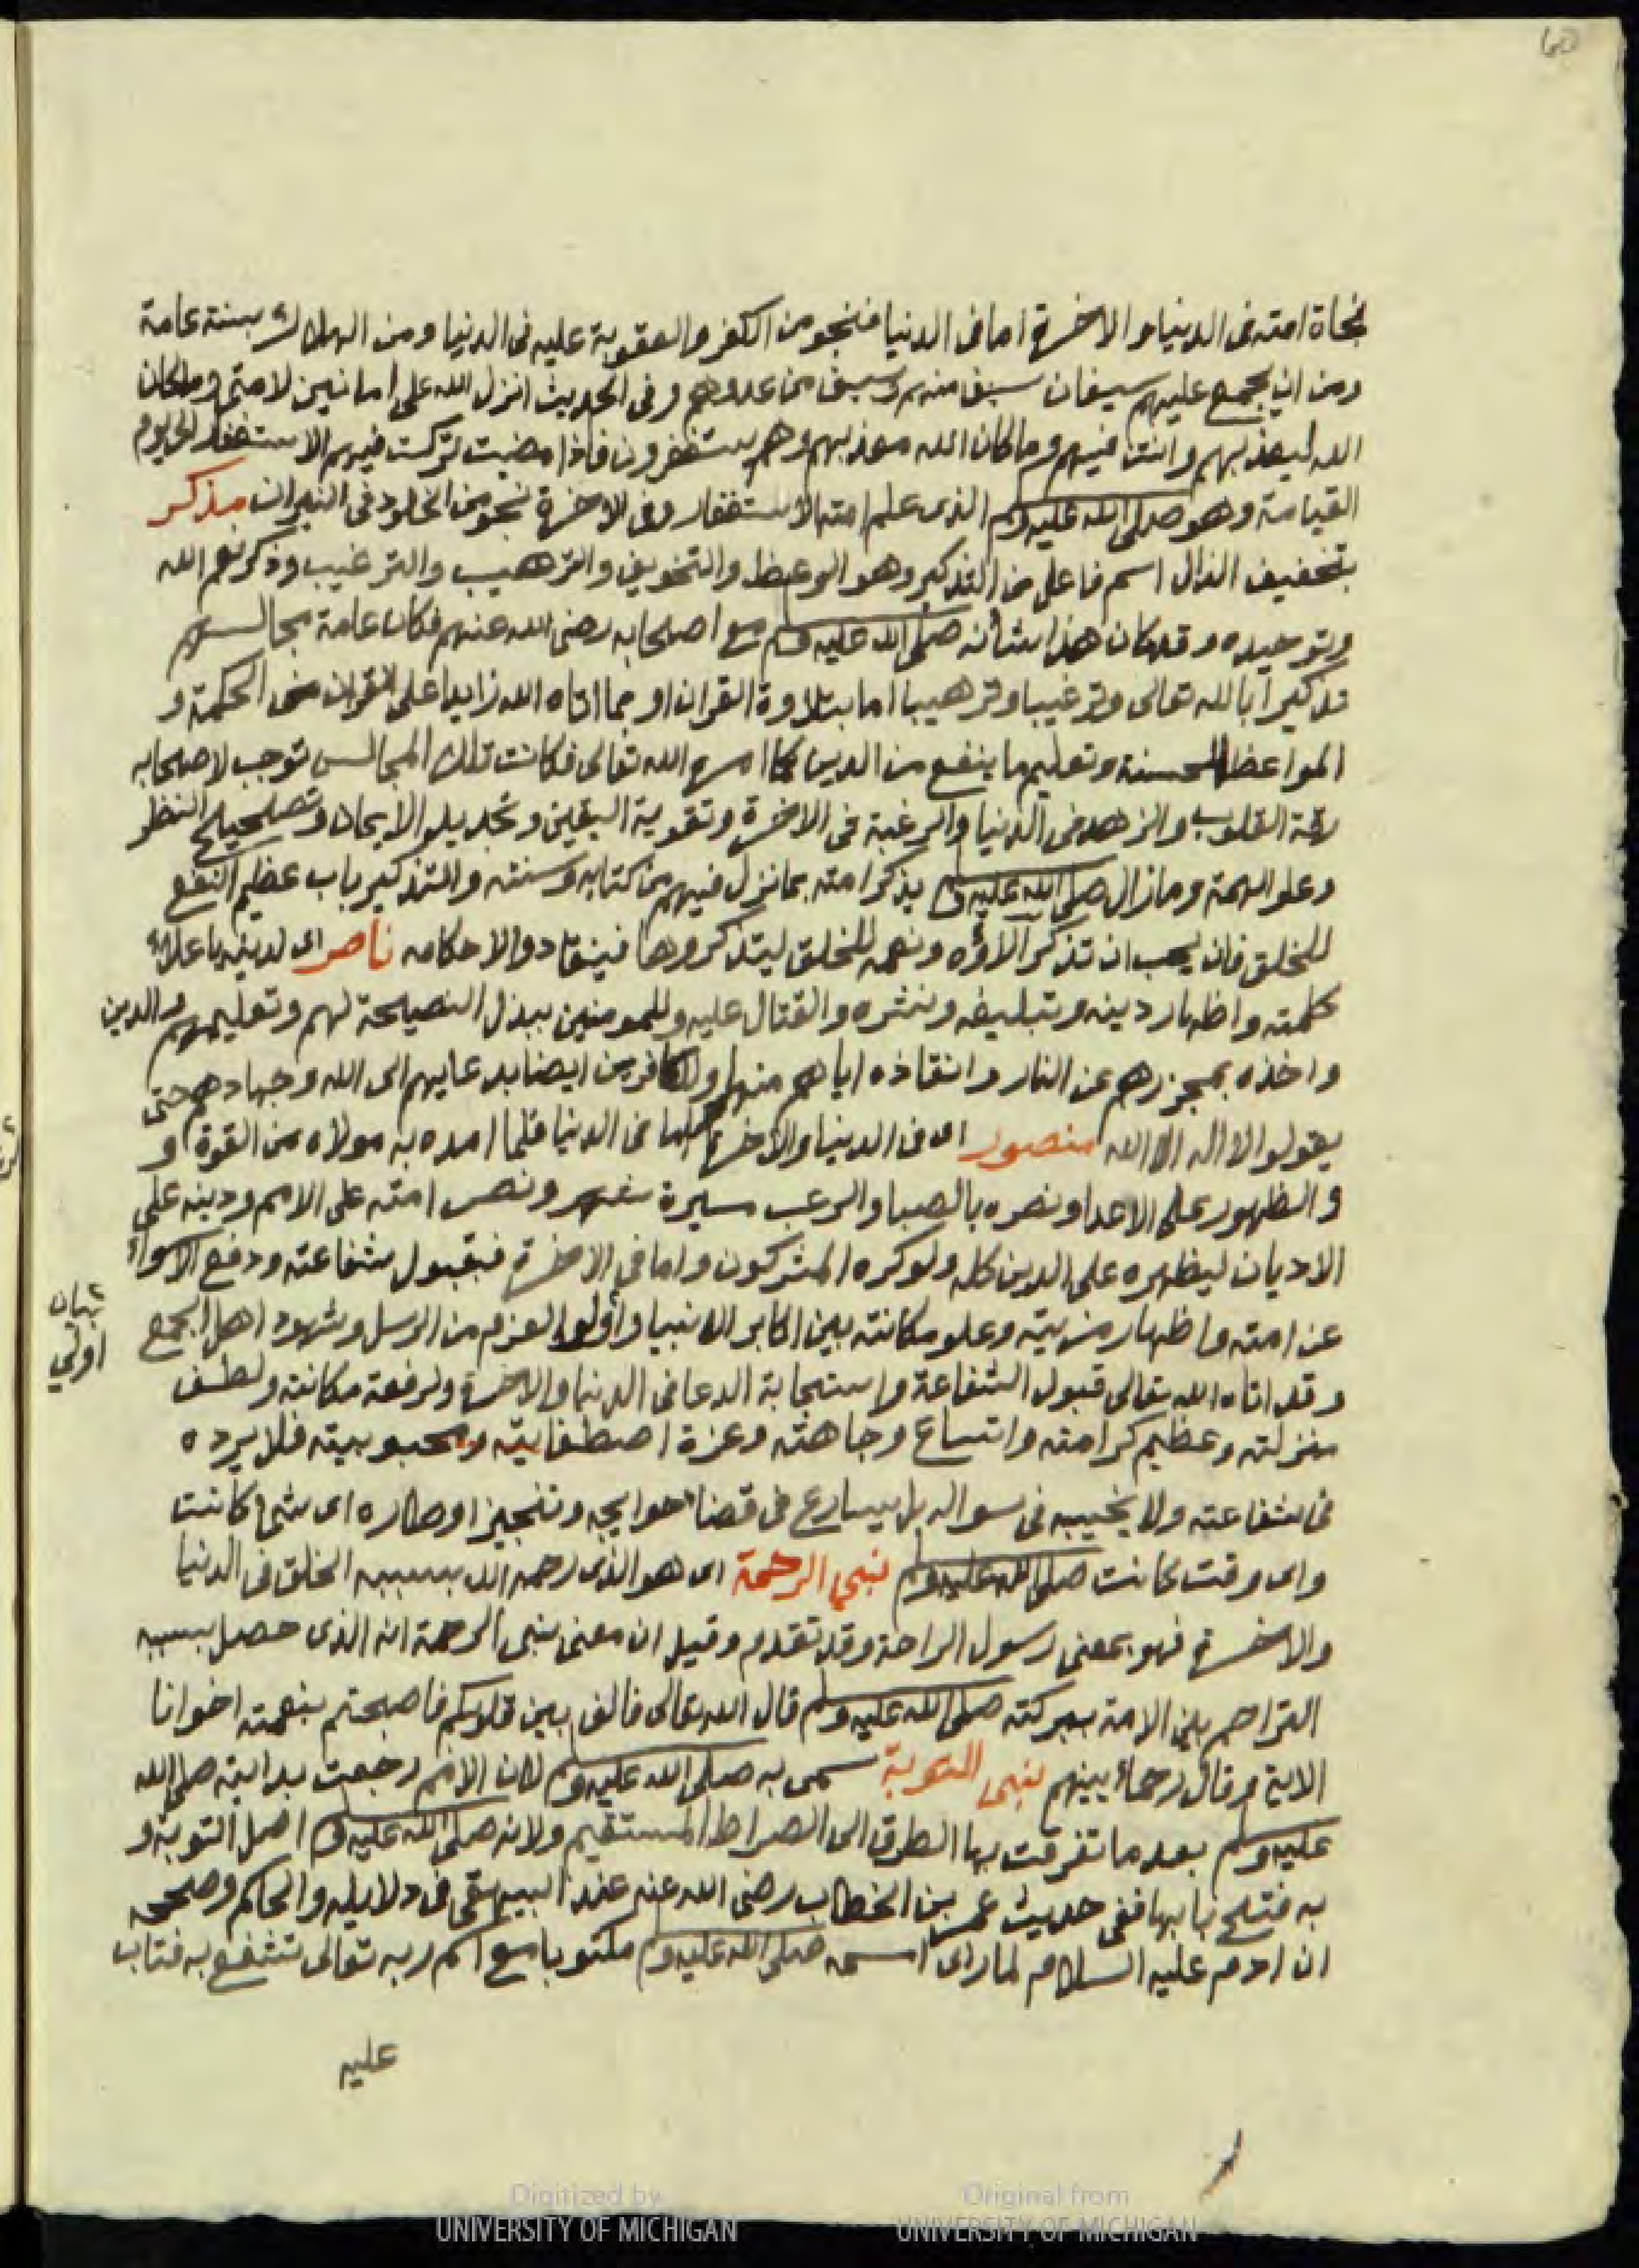 60
نجاة امته فى الدينا والاخرة اما فى الدنيا فنجو من الكفر والعقوبة عليه فى الدنيا ومن الهلاك بسنة عامة
ومن ان يجمع عليهم سيفان سيف منهم وسيف من عدوهم وفى الحديث انزل الله على امانين لامتى وماكان
الله ليعذبهم وانت فيهم وما كان الله معذبهم وهم يستغفرون فاذا مضيت تركت فيهم الاستغفار الى يوم
القيامة وهو صلى الله عليه وم الذى علم امته الاستغفار وفى الاخرة نجو من الخلود فى النيران مذكر
بتخفيف الذال اسم فاعل من التذكير وهو الوعظ والتخويف والترهيب والترغيب وذكر نعم الله
وتوحيده وقد كان هذا شأنه صلى الله عليه وم مع اصحابه رضى الله عنهم فكان عامة مجالسهم
تذكيرا بالله تعالى وترغيبا وترهيبا اما بتلاوة القران او بما اتاه الله زايدا على القران من الحكمة و
المواعظ الحسنة وتعليم ما ينفع من الدين كما امره الله تعالى فكانت تلك المجالس توجب لاصحابه
رقة القلوب والزهد فى الدنيا والرغبة فى الاخرة وتقوية اليقين وتجديد الايمان وتصحيح النظر
وعلو الهمة ومازال صلى الله عليه وم يذكر امته بما نزل فيهم من كتابه وسنته والتذكير باب عظيم النفع
للخلق فان يحب ان تذكر آلاؤه ونعمه للخلق ليتذكروها فينقادوا لاحكامه ناصر اى لدينه باعلاء
كلمته واظهار دينه وتبليغه ونشره والقتال عليه وللمومنين ببذل النصيحة لهم وتعليمهم والدين
واخذه بحجزهم عن النار وانقاذه اياهم منها وللكافرين ايضا بدعايهم الى الله وجهادهم حتى
يقولوا لا اله الا الله منصور اى فى الدينا والاخرة اما فى الدنيا فلما امده به مولاه من القوة و
والظهور على الاعدا ونصره بالصبا والرعب مسيرة شهر ونصر امته على الامم ودينه على
الاديان ليظهره على الدين كله ولو كره المشركون واما فى الاخرة فبقبول شفاعته ودفع الاسواء
عن امته واظهار مزيته وعلو مكانته بين اكابر الانبيا واولوا العزم من الرسل وشهود اهل الجمع
وقد اتاه الله تعالى قبول الشفاعة واستجابة الدعا فى الدنيا والاخرة ولرفعة مكانته ولطف
منزلته وعظيم كرامته واتساع وجاهته وعزة اصطفايته ومحبوبيته فلا يرده
فى شفاعته ولا يخيبه فى سواله بل يسارع فى قضا حوايجه وتنجيز اوطاره اى شى كانت
واى وقت كانت صلى الله عليه وم نبي الرحمة اى هو الذى رحم الله بسببه الخلق فى الدنيا
والاخرة فهو بمعنى رسول الراحة وقد تقدم وقيل ان معنى نبى الرحمة انه الذى حصل بسببه
التراحم بين الامة ببركته صلى الله عليه وم قال الله تعالى فالف بين قلوبكم فاصبحتم بنعمته اخوانا
الاية وقال رحمأ بينهم نبى التوبة سمى به صلى الله عليه وم لان الامم رجعت بدايته صلى الله
عليه وم بعد ما تفرقت بها الطرق الى الصراط المستقيم ولانه صلى الله عليه وم اصل التوبة و
به فتح بابها ففى حديث عمر بن الخطاب رضى الله عنه عند البيهقى فى دلايله والحاكم وصححه
ان ادم عليه السلام لما راى اسمه صلى الله عليه وم مكتوبا مع اسم ربه تعالى تشفع به فتاب
عليه
اولي
Digitized by
UNIVERSITY OF MICHIGAN
Original from
UNIVERSITY OF MICHIGAN